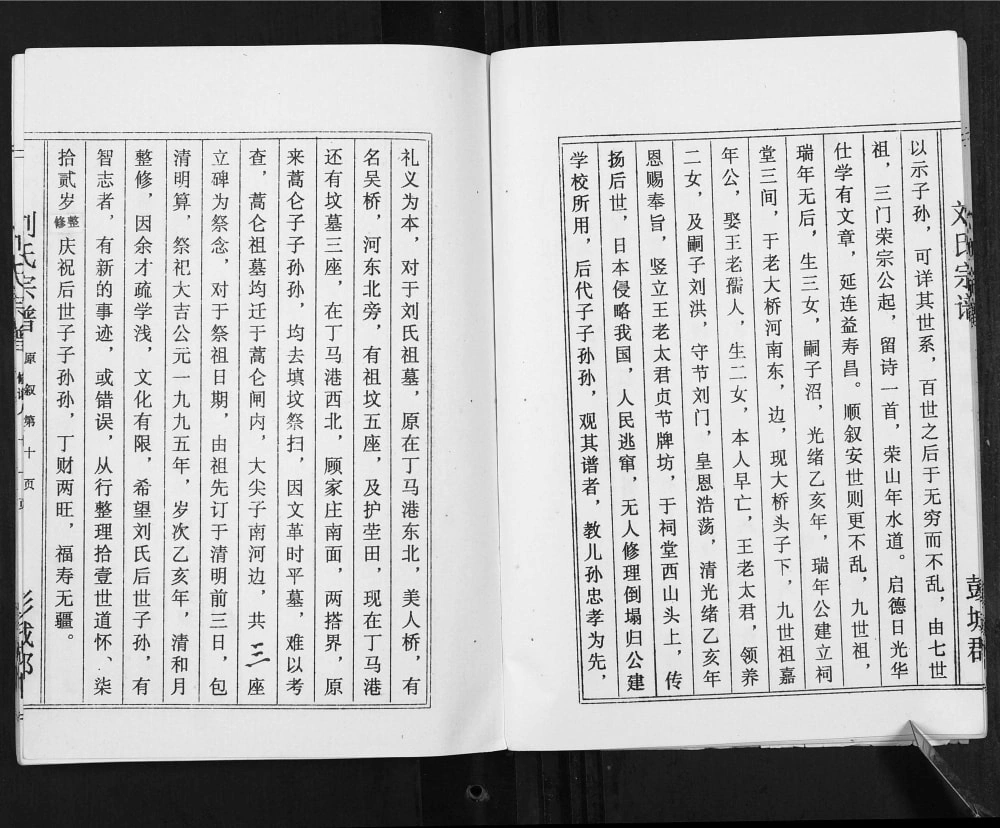 刘氏宗谱
彭城郡
以示子孙，可详其世系，百世之后于无穷而不乱，由七世
祖，三门荣宗公起，留诗一首，荣山年水道。启德日光华
仕学有文章，延连益寿昌。顺叙安世则更不乱，九世祖，
瑞年无后，生三女，嗣子沼，光绪乙亥年，瑞年公建立祠
堂三间，于老大桥河南东，边，现大桥头子下，九世祖嘉
年公，娶王老孺人，生二女，本人早亡，王老太君，领养
二女，及嗣子刘洪，守节刘门，皇恩浩荡，清光绪乙亥年
恩赐奉旨，竖立王老太君贞节牌坊，于祠堂西山头上，传
扬后世，日本侵略我国，人民逃窜，无人修理倒塌归公建
学校所用，后代子子孙孙，观其谱者，教儿孙忠孝为先，
礼义为本，对于刘氏祖墓，原在丁马港东北，美人桥，有
名吴桥，河东北旁，有祖坟五座，及护茔田，现在丁马港
还有坟墓三座，在丁马港西北，顾家庄南面，两搭界，原
来蒿仑子子孙孙，均去填坟祭扫，因文革时平墓，难以考
查，蒿仑祖墓均迁于蒿仑闸内，大尖子南河边，共三座
立碑为祭念，对于祭祖日期，由祖先订于清明前三日，包
清明算，祭祀大吉公元一九九五年，岁次乙亥年，清和月
整修，因余才疏学浅，文化有限，希望刘氏后世子孙，有
智志者，有新的事迹，或错误，从行整理拾壹世道怀、柒
拾贰岁整修庆祝后世子子孙孙，丁财两旺，福寿无疆。
刘氏宗谱
原叙第十页
彭城郡